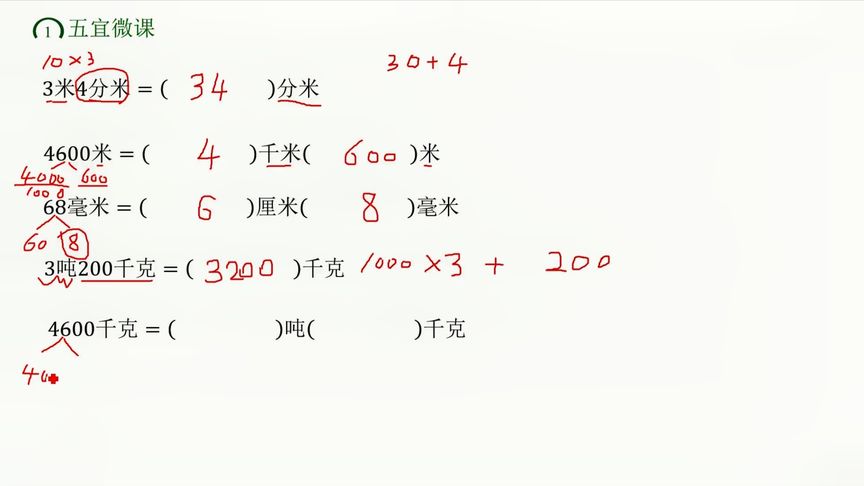 1 五宜微课
10×3 30+4
3米4分米=( 34 )分米
4600米=( 4 )千米( 600 )米
4000 600
1000
68毫米=( 6 )厘米( 8 )毫米
60 8
3吨200千克=( 3200 )千克 1000×3 + 200
4600千克=( )吨( )千克
40